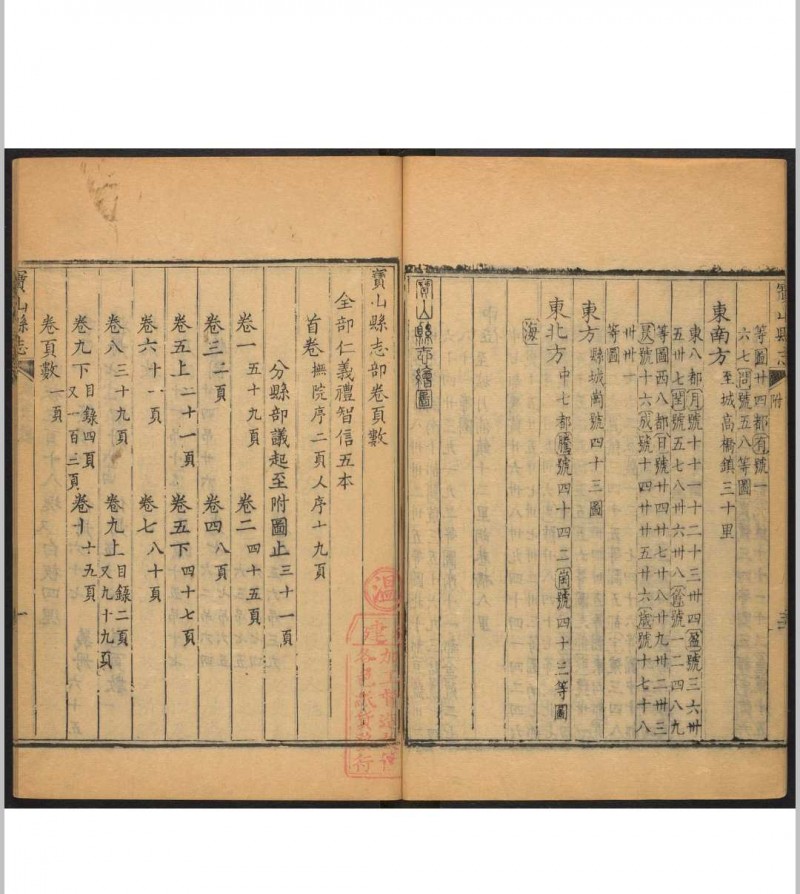 寶山縣志
附
等圖廿四都有號一
六七問號五八等圖
東南方至城高橋鎮三十里
東八都月號十十一十二十三卅四盈號三六卅
五卅七閏號五七八卅六卅八 號一二四八九
等圖西八都日號廿四廿七廿八廿九卅二卅三
號十六成號十四廿廿五廿六歲號十七十八
卅卅一
等圖
東方縣城崗號四十三圖
東北方中七都騰號四十四二崗號四十三等圖
海
寶山縣志繪圖
寶山縣志部卷頁數
全部仁義禮智信五本
首卷撫院序二頁人序十九頁
分縣部議起至附圖止三十一頁
卷一五十九頁 卷二四十五頁
卷三二頁 卷四八頁
卷五上二十一頁 卷五下四十七頁
卷六十一頁 卷七八十頁
卷八三十九頁 卷九上目錄二頁又九十九頁
卷九下目錄四頁又一百三頁 卷十六十五頁
卷頁數一頁
寶山縣志
一
溫